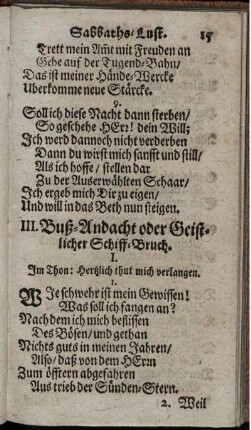 Sabbaths-Lust. 15
Trett mein Amt mit Freuden an
Gehe auf der Tugend-Bahn/
Das ist meiner Hände-Wercke
Uberkomme neue Stärcke.
9.
Soll ich diese Nacht dann sterben/
So geschehe HErr! dein Will;
Ich werd dannoch nicht verderben
Dann du wirst mich sanfft und still/
Als ich hoffe/ stellen dar
Zu der Auserwählten Schaar/
Ich ergeb mich Dir zu eigen/
Und will in das Beth nun steigen.
III. Buß-Andacht oder Geist-
licher Schiff-Bruch.
I.
Im Thon: Hertzlich thut mich verlangen.
1.
Wie schwehr ist mein Gewissen!
Was soll ich fangen an?
Nach dem ich mich beflissen
Des Bösen/ und gethan
Nichts guts in meinen Jahren/
Also/ daß von dem HErrn
Zum öfftern abgefahren
Aus trieb der Sünden-Stern.
2. Weil